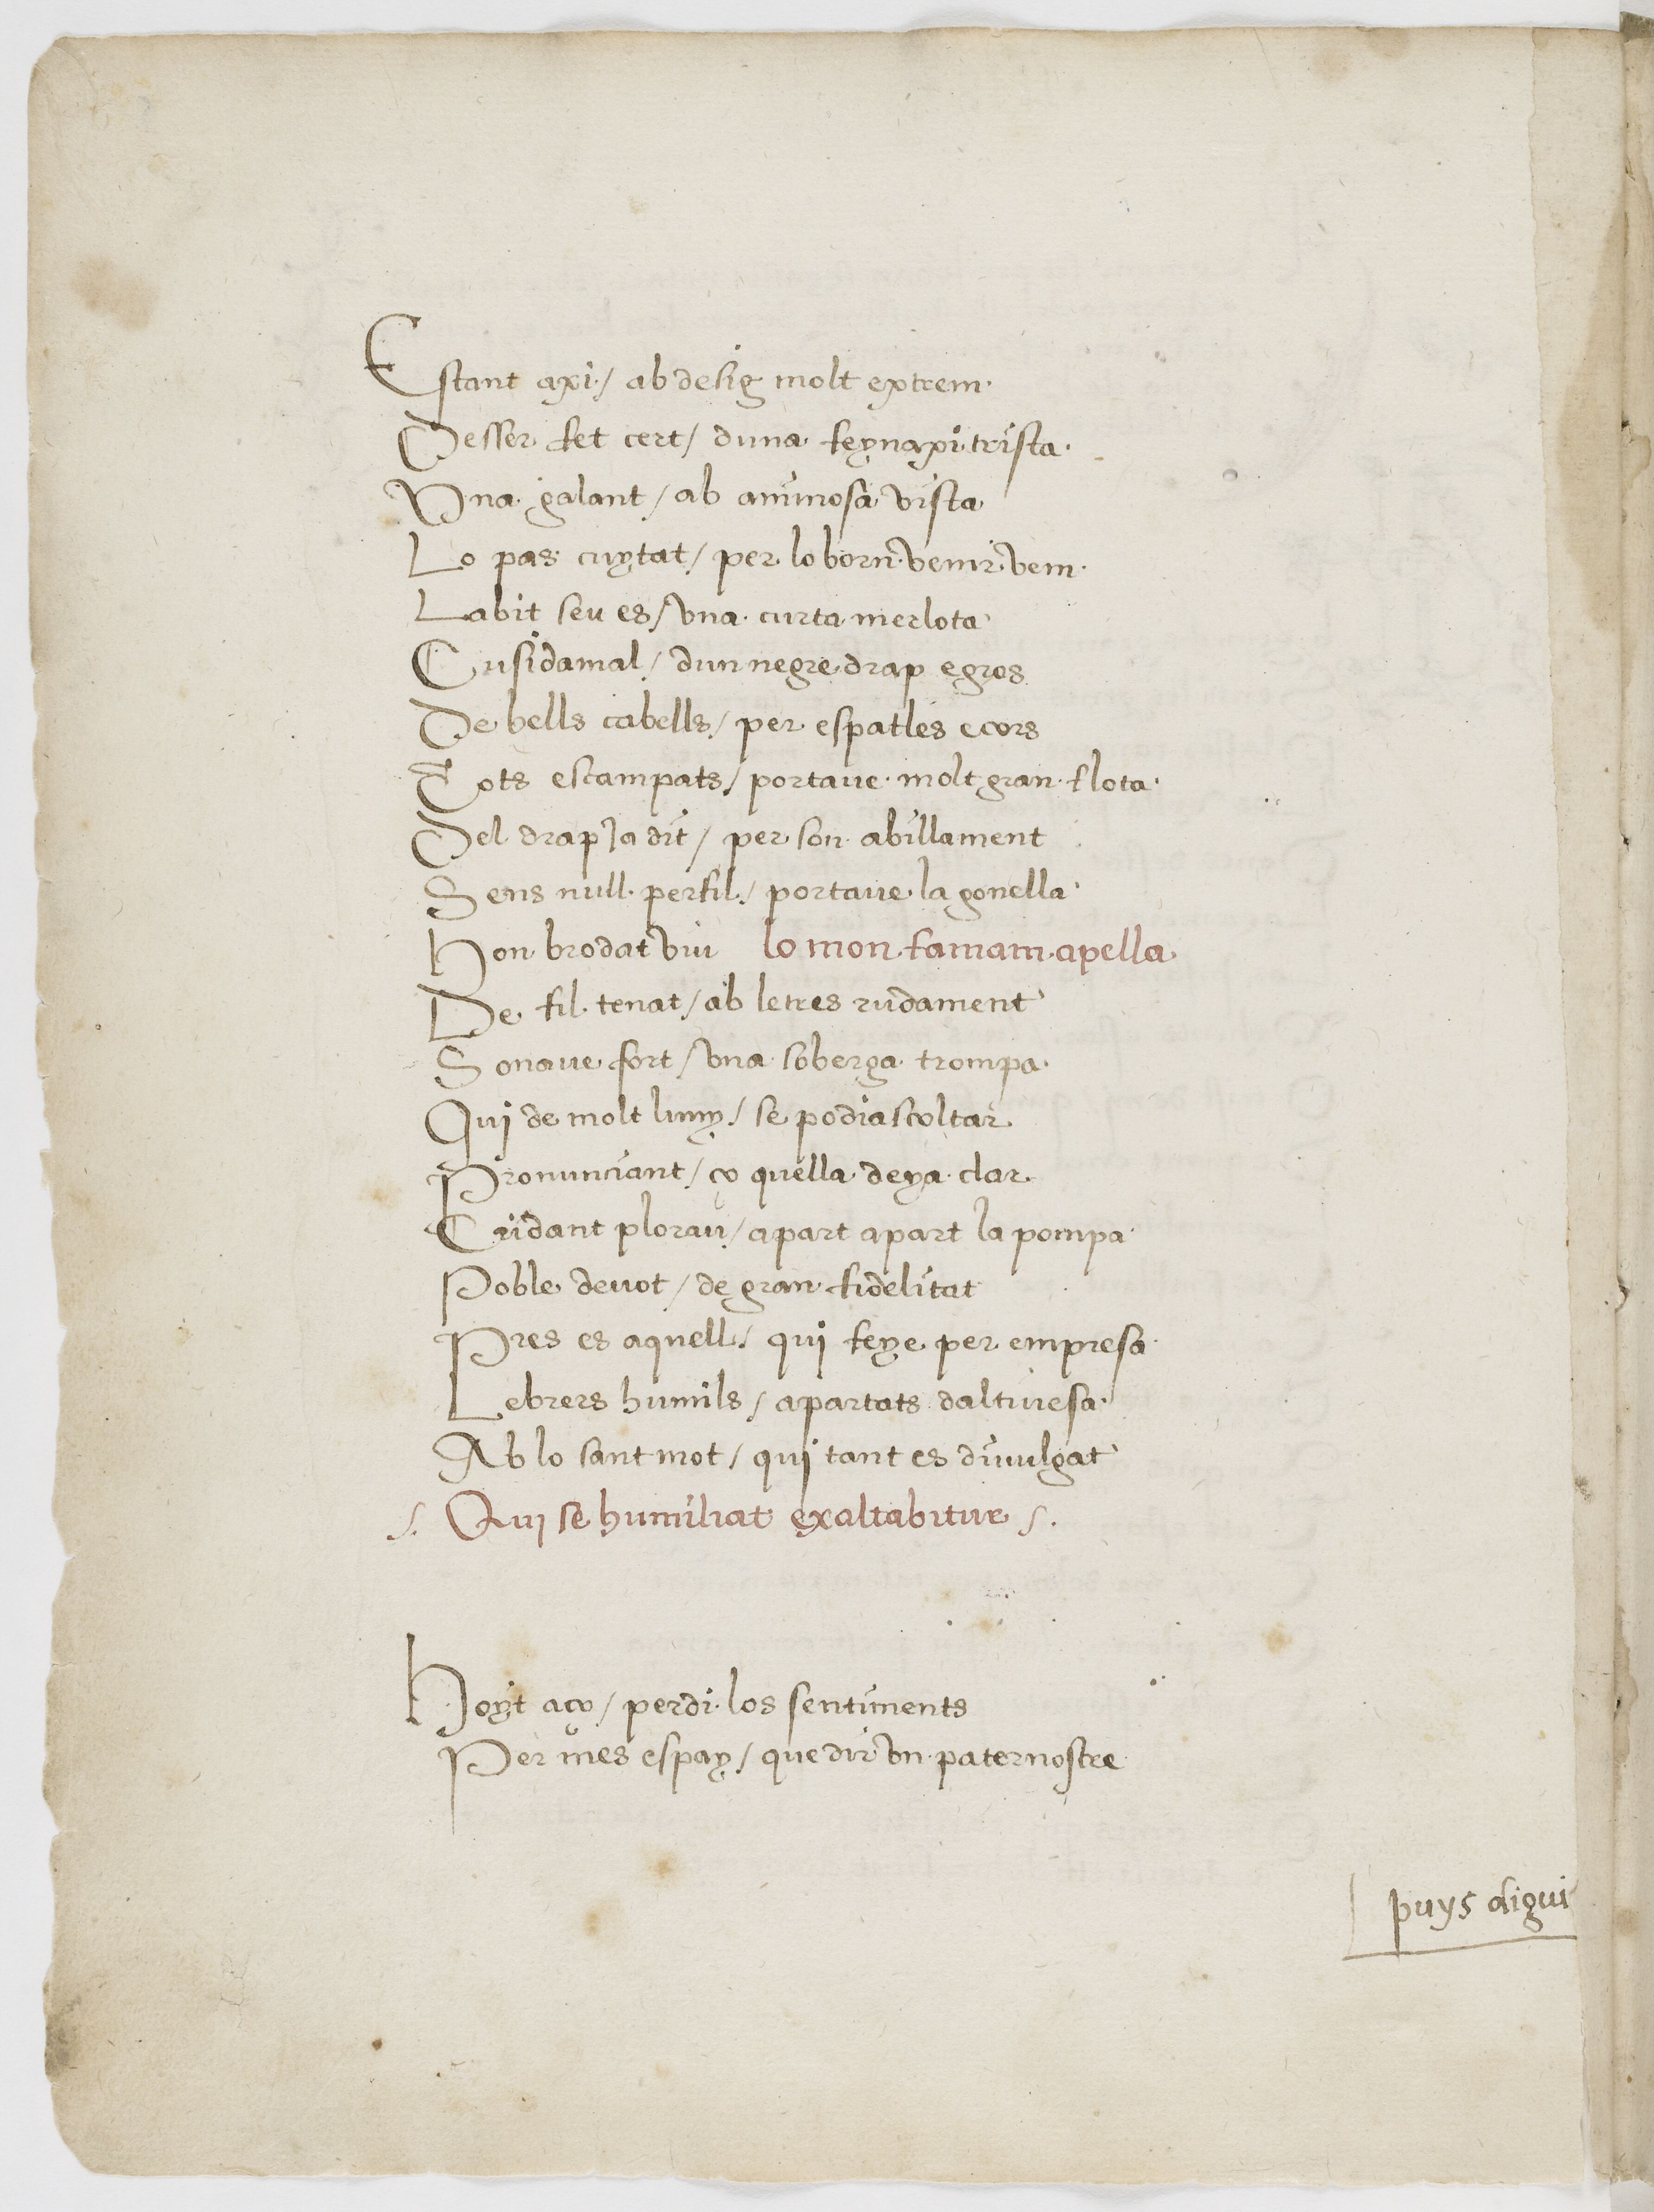 Estant axi / ab desig molt extrem
Desser fet cert / duna feynaxi trista
Vna galant / ab animosa vista
Lo pas cuytat / per lo born venir vem
Labit seu es / vna curta merlota
Cusidamal / dun negre drap egros
De bells cabells / per espatles ecors
Tots escampats / portaue molt gran flota
Del drap ja dit / per son abillament
Sens null perfil / portaue la gonella
Hon brodat viu lo mon famam apella
De fil tenat / ab letres rudament
Sonaue fort / vna soberga trompa
Qui de molt luny / se podiascoltar
Pronunciant / ço quella deya clar
Cridant plorau / apart apart la pompa
Poble deuot / de gran fidelitat
Pres es aquell / qui feye per empresa
Lebrers humils / apartats daltiuesa
Ab lo sant mot / qui tant es diuulgat
.s. Qui se humiliat exaltabitur .s.
Hoyt aço / perdi los sentiments
Per mes espay / que dir vn paternostre
puys digui